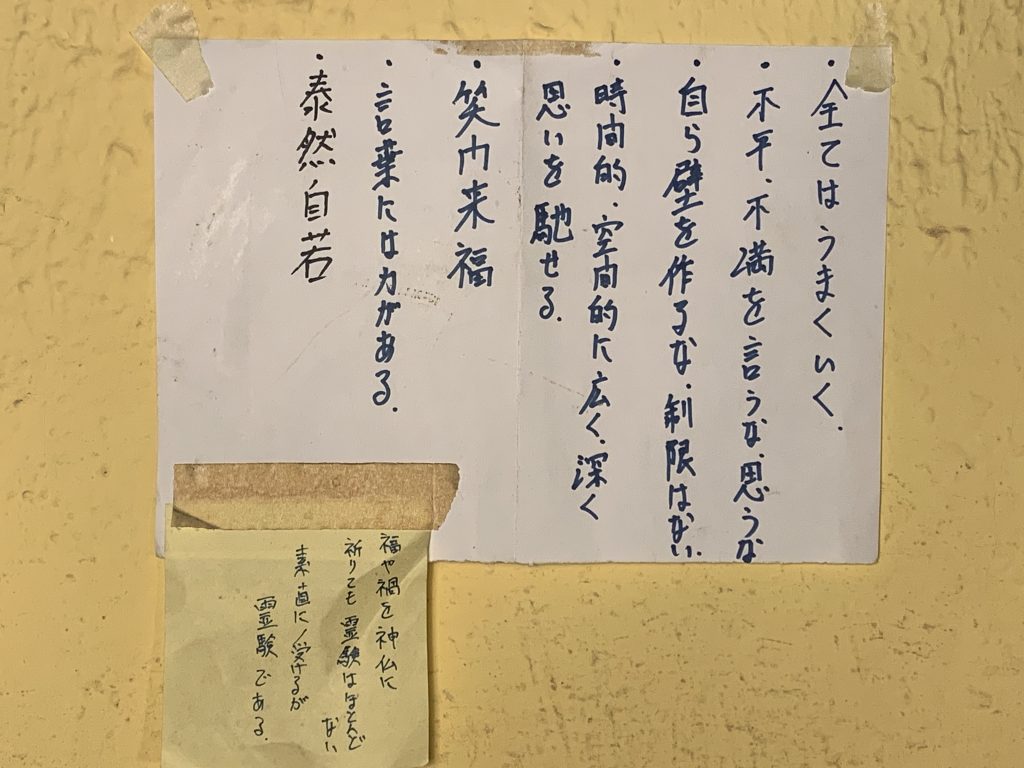 ・全てはうまくいく.
・不平、不満を言うな、思うな
・自ら壁を作るな、制限はない.
・時間的、空間的に広く、深く
思いを馳せる.
・笑门来福
・言葉には力がある.
・泰然自若
福や禍を神仏に
祈りても霊験はほとんど
ない
素直に受けるが
霊験である.